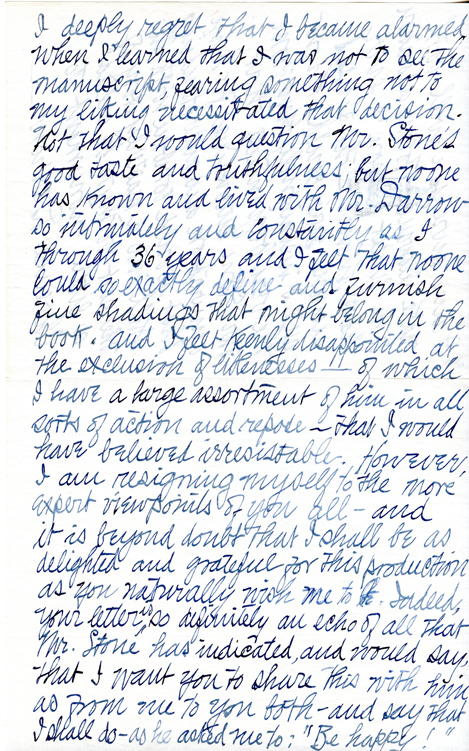 I deeply regret that I became alarmed
when I learned that I was not to see the
manuscript, fearing something not to
my liking necessitated that decision.
Not that I would question Mr. Stone's
good taste and truthfulness; but no one
has known and lived with Mr. Darrow
so intimately and constantly as I
through 36 years and I feel that no one
could so exactly define and furnish
fine shadings that might belong in the
book. and I feel keenly disappointed at
the exclusion of likenesses !! of which
I have a large assortment of him in all
sorts of action and repose – that I would
have believed irresistable. However,
I am resigning myself to the more
expert viewpoints of you all – and
it is beyond doubt that I shall be as
delighted and grateful for this production
as you naturally wish me to be. Indeed,
your letter, so definitely an echo of all that
Mr. Stone has indicated, and would say,
that I want you to share this with him
as from me to you both – and say that
I shall do – as he asked me to: "Be happy!"